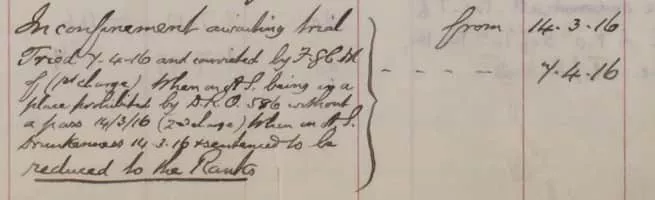 In confinement awaiting trial from 14.3.16
Tried 7.4.16 and convicted by F.G.C.M - - - - 7.4.16
of (1st charge) When on A.S. being in a
place prohibited by D.R.O. 586 without
a pass 14/3/16 (2nd charge) When on A.S.
Drunkenness 14.3.16 & sentenced to be
reduced to the Ranks